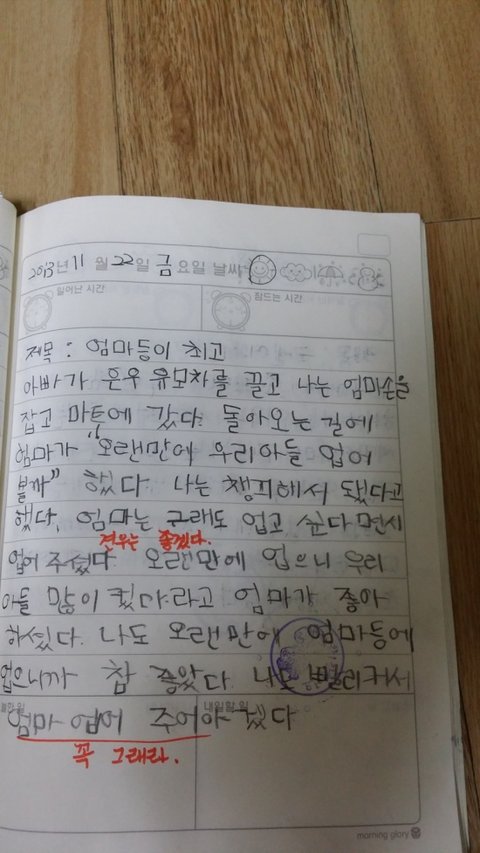 2013년 11월 22일 금요일 날씨
일어난 시간
잠드는 시간
제목 : 엄마등이 최고
아빠가 은우 유모차를 끌고 나는 엄마손을
잡고 마트에 갔다. 돌아오는 길에
엄마가 "오랜만에 우리아들 업어
볼까" 했다. 나는 챙피해서 됐다고
했다. 엄마는 그래도 업고 싶다면서
견우는 좋겠다.
업어 주셨다 오랜만에 업으니 우리
아들 많이 컸다라고 엄마가 좋아
하셨다. 나도 오랜만에 엄마등에
업으니까 참 좋았다. 나도 빨리커서
내일할 일
엄마 업어 주어야 겠다
꼭 그래라.
morning glory